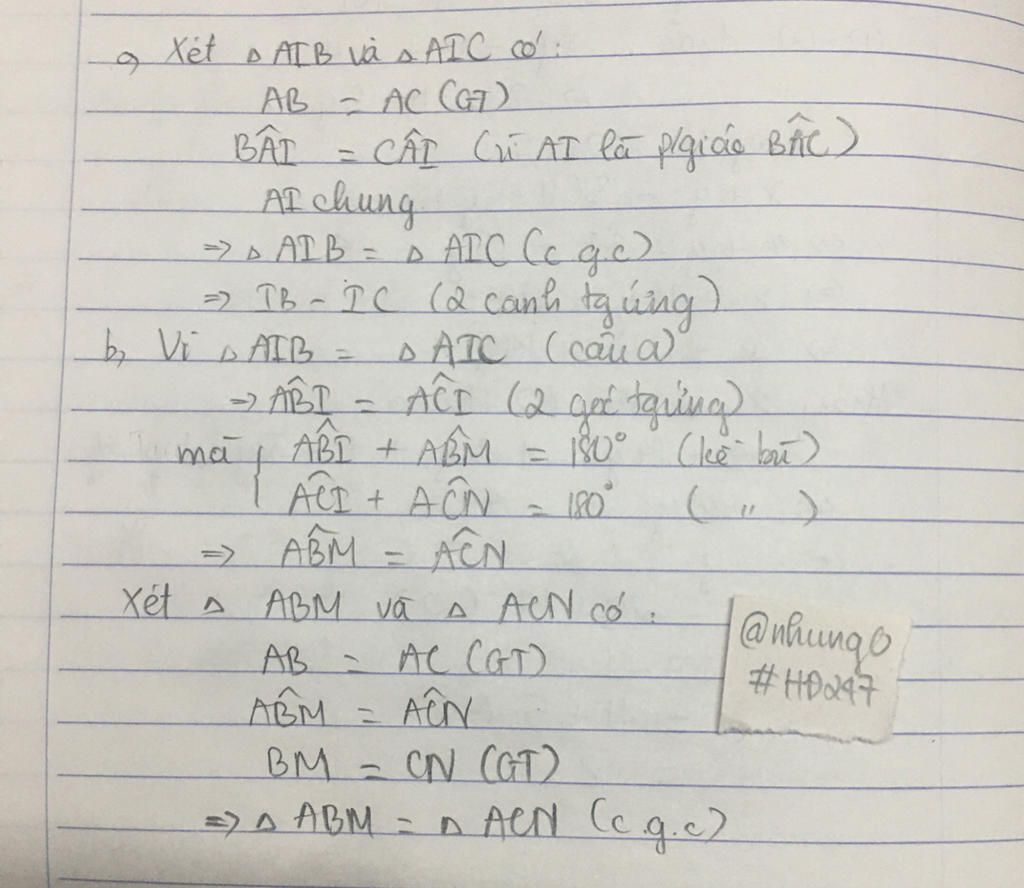 a, Xét △ AIB và △ AIC có:
AB = AC (GT)
BÂI = CÂI (vì AI là p/giác BÂC)
AI chung
⇒ △ AIB = △ AIC (c g.c)
⇒ IB = IC (2 cạnh tg ứng)
b, Vì △ AIB = △ AIC (câu a)
⇒ AB̂I = AĈI (2 góc tg ứng)
mà { AB̂I + AB̂M = 180° (kề bù)
AĈI + AĈN = 180° ( ,, )
⇒ AB̂M = AĈN
Xét △ ABM và △ ACN có:
AB = AC (GT)
AB̂M = AĈN
BM = CN (GT)
⇒ △ ABM = △ ACN (c.g.c)
@nhung0
#HĐ247